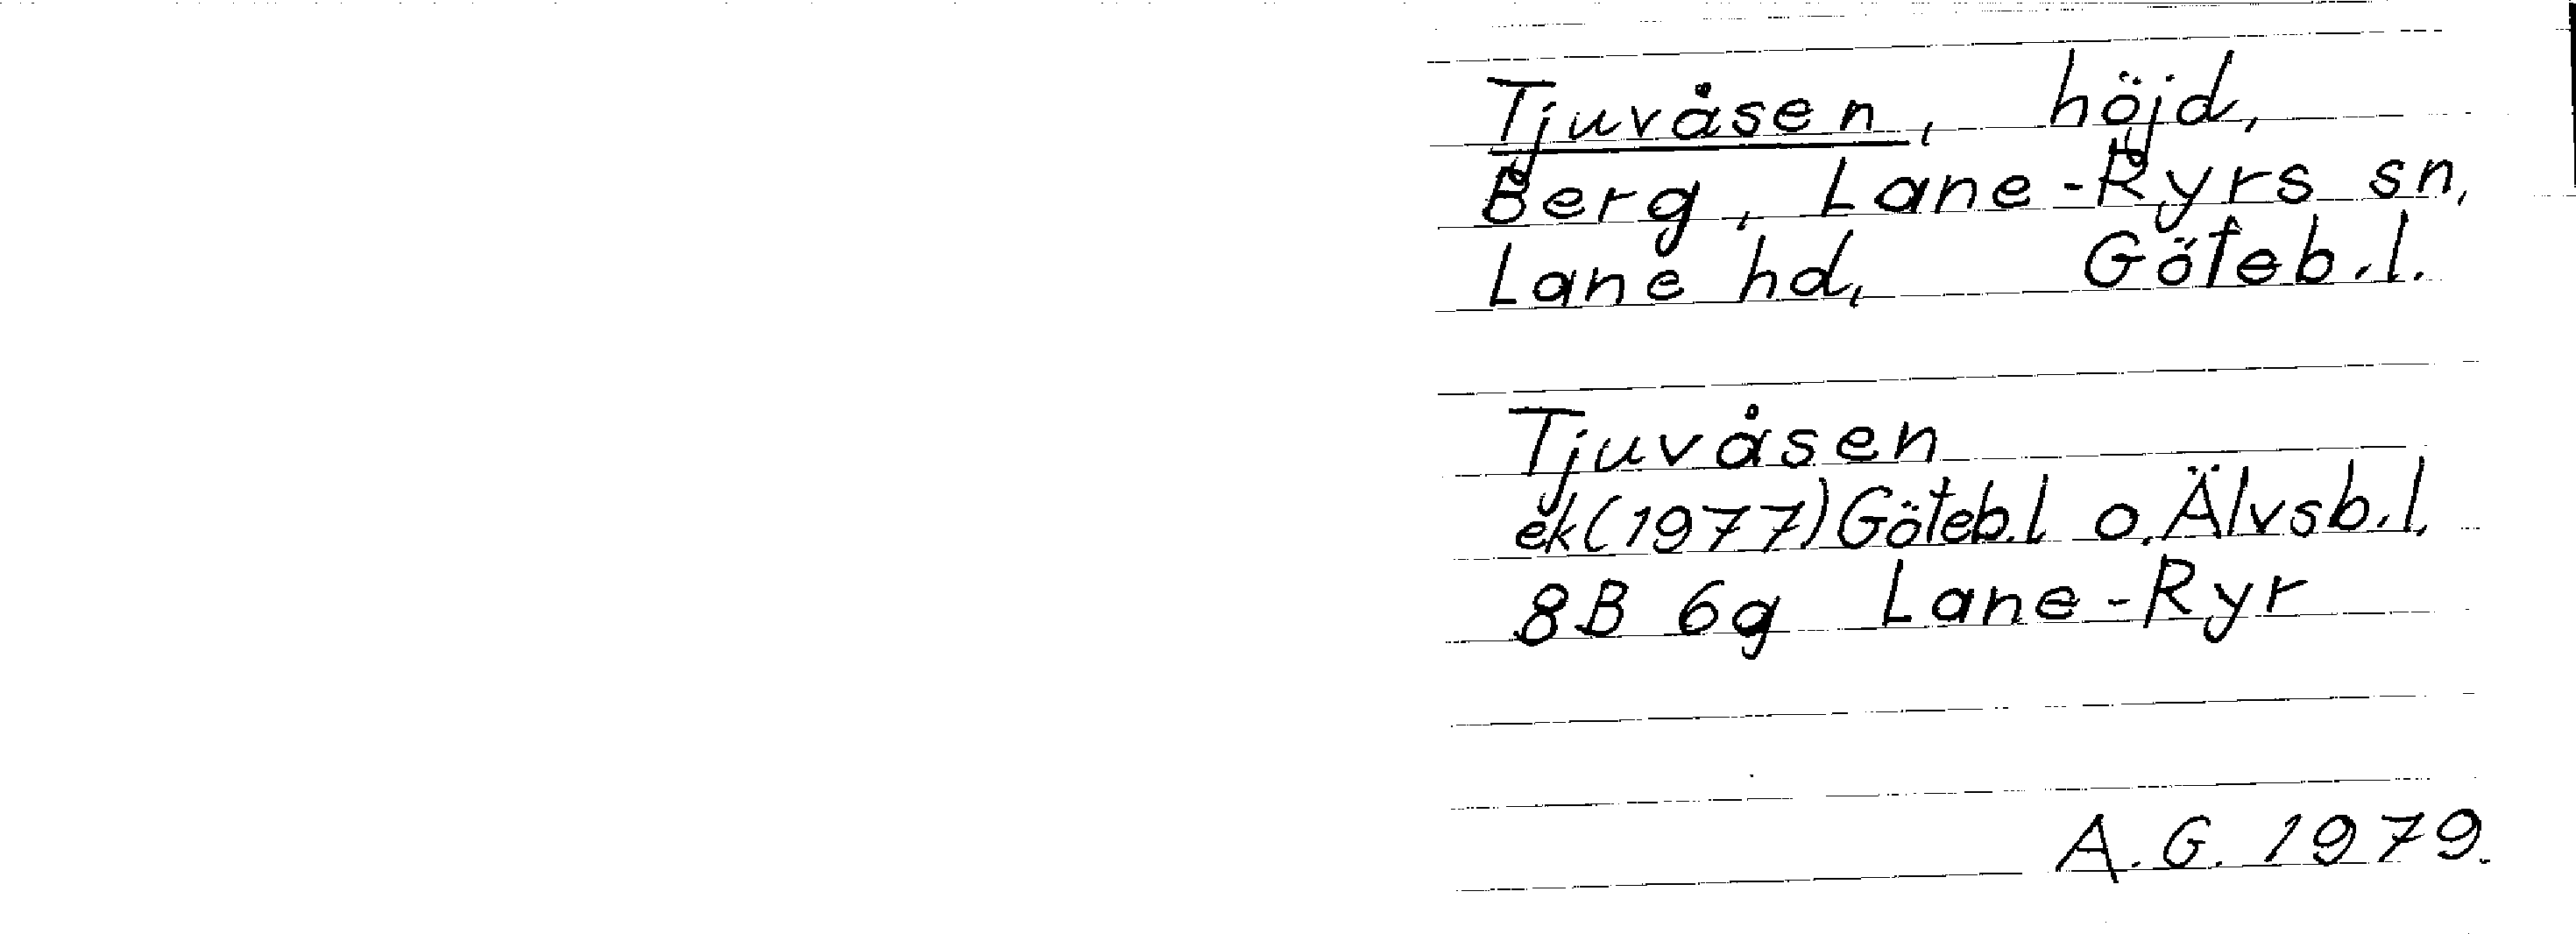 Tjuvåsen, höjd,
Berg, Lane-Ryrs sn,
Lane hd, Göteb.l.
Tjuvåsen
ek(1977)Göteb.l o.Älvsb.l.
8B 6g Lane-Ryr
A.G. 1979.